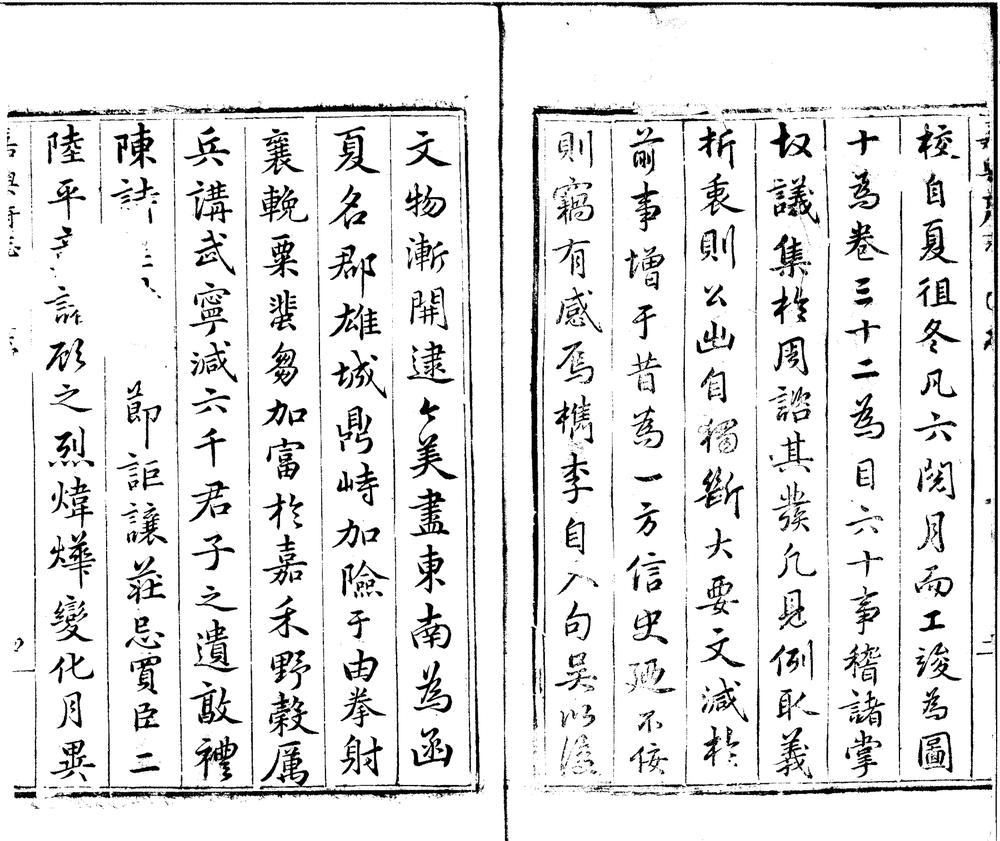 校自夏徂冬凡六閱月而工竣為圖
十為卷三十二為目六十事稽諸掌
故議集於周諮其發凡見例取義
折衷則公幽自獨斷大要文減於
前事增于昔為一方信史廼不佞
則竊有感焉檇李自入句吳以後
文物漸開逮今美盡東南為函
夏名郡雄城鼎峙加險于由拳射
襄輓粟蜚芻加富於嘉禾野穀厲
兵講武寧減六千君子之遺敵禮
陳詩
節詎讓莊忌買臣二
陸平
顧之烈煒燁變化月異